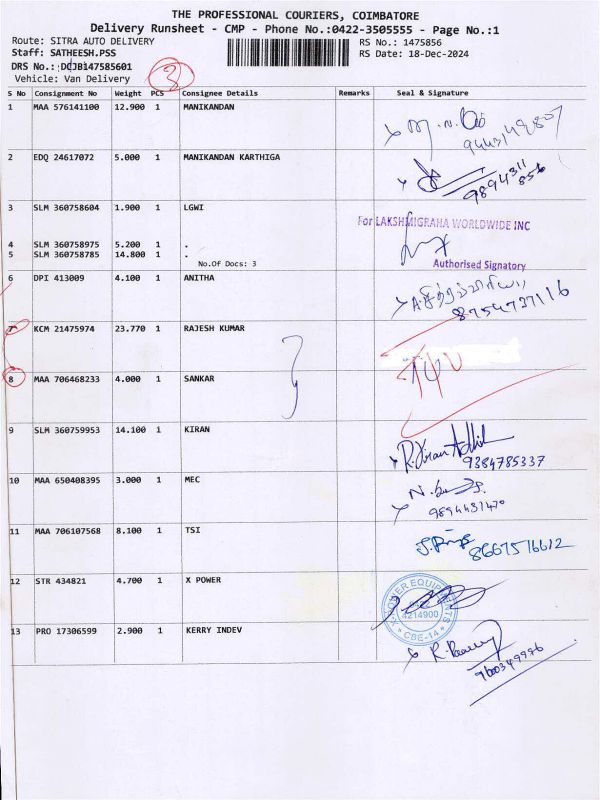 THE PROFESSIONAL COURIERS, COIMBATORE
Delivery Runsheet - CMP - Phone No.:0422-3505555 - Page No.:1
Route: SITRA AUTO DELIVERY
RS No.: 1475856
Staff: SATHEESH.PSS
RS Date: 18-Dec-2024
DRS No.: DCJB147585601
3
Vehicle: Van Delivery
S No Consignment No Weight PCS Consignee Details Remarks Seal & Signature
1 MAA 576141100 12.900 1 MANIKANDAN
2 EDQ 24617072 5.000 1 MANIKANDAN KARTHIGA
9894311
856
3 SLM 360758604 1.900 1 LGWI
For LAKSHMIGRAHA WORLDWIDE INC
4 SLM 360758975 5.200 1 .
5 SLM 360758785 14.800 1 .
No.Of Docs: 3
Authorised Signatory
6 DPI 413009 4.100 1 ANITHA
8754727116
7 KCM 21475974 23.770 1 RAJESH KUMAR
8 MAA 706468233 4.000 1 SANKAR
9 SLM 360759953 14.100 1 KIRAN
9384785337
10 MAA 650408395 3.000 1 MEC
9894431470
11 MAA 706107568 8.100 1 TSI
8667516612
12 STR 434821 4.700 1 X POWER
X-POWER EQUIPMENTS
4214900
CBE-14
13 PRO 17306599 2.900 1 KERRY INDEV
9600349976